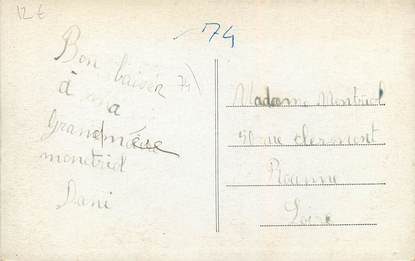 12 €
74
Bon baiser
74
à ma
Grand mère
montréd
Dani
Madame Montréd
50 rue clermont
Roanne
Loire